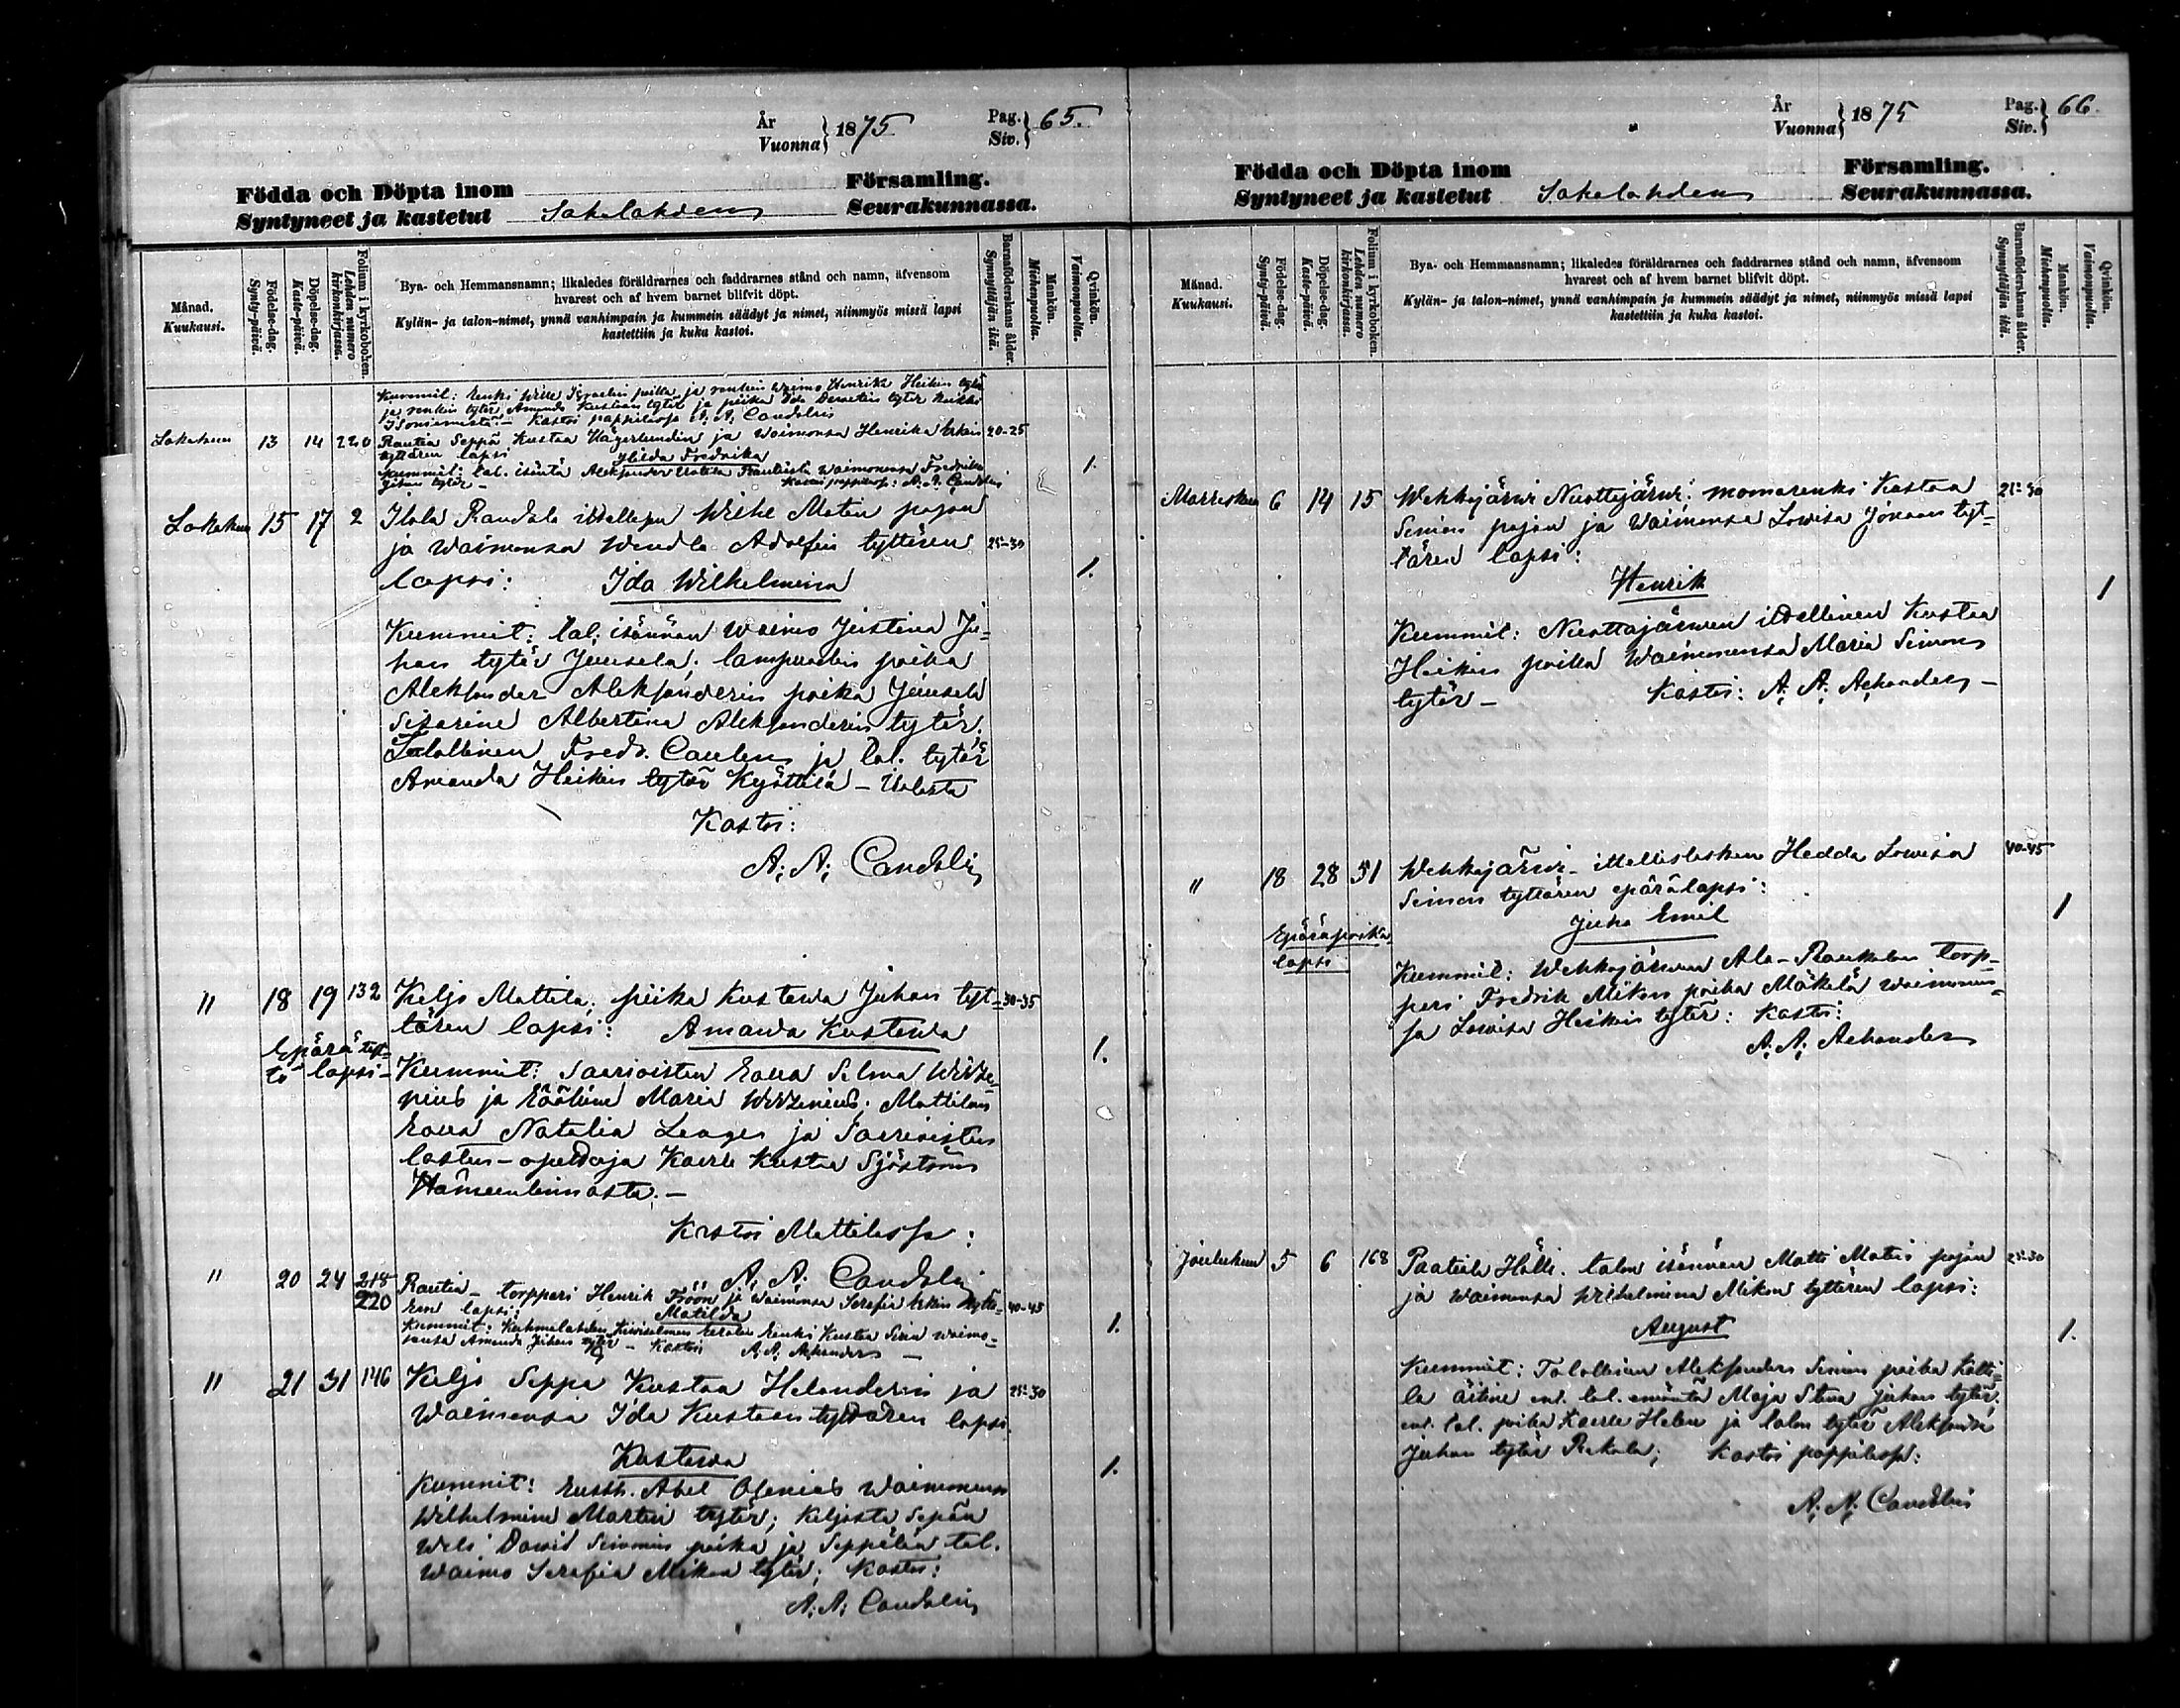 År
Vuonna } 1875
Pag.
Siv. } 65.
Födda och Döpta inom Församling.
Syntyneet ja kastetut Sahalahden Seurakunnassa.
Månad.
Kuukausi.
Födelse-dag.
Synty-päivä.
Döpelse-dag.
Kaste-päivä.
Folium i kyrkoboken.
Lehden numero
kirkonkirjassa.
Bya- och Hemmansnamn; likaledes föräldrarnes och faddrarnes stånd och namn, äfvensom
hvarest och af hvem barnet blifvit döpt.
Kylän- ja talon-nimet, ynnä vanhimpain ja kummein säädyt ja nimet, niinmyös missä lapsi
kastettiin ja kuka kastoi.
Barnaföderskans ålder.
Synnyttäjän ikä.
Mankön.
Miehenpuolta.
Qvinkön.
Vaimonpuolta.
Kummit: Renki Wille poika ja renkin waimo Henrika Heikin tytär
ja renkin tytär Amanda Kustaan tytär ja piika Ida tytär
Kastoi pappilassa A. A. Candolin
Lokakuu 13 14 220 Rautia Seppä Kustaa Hägerlundin ja Waimonsa Henrika Erkin 20-25
tyttären lapsi Hilda Fredrika 1.
Kummit: tal. isäntä Aleksander Waimonensa Fredrika
Juhan tytär - Kastoi pappilassa: A. A. Candolin
Lokakuu 15 17 2 Ilola Randala itsellisen Wilhe Matin pojan
ja Waimonsa Wendla Adolfin tyttären 25-30
lapsi: Ida Wilhelmiina 1.
Kummit: tal. isännän Waimo Justina Ju-
han tytär Juusela. lampuodin poika
Aleksander Aleksanderin poika Juusela
Sisarine Albertina Aleksanderin tytär.
Talollinen Fredr. ja tal. tytär
Amanda Heikin tytär Kyöttilä -
Kastoi:
A. A. Candolin
" 18 19 132 Keljo Mattila; piika Kustawa Juhan tyt- 30-35
tären lapsi: Amanda Kustawa 1.
Epärä tyt-
tö lapsi -
Kummit: Saarioisten Rouva Selma
ja Maria Mattilan
Rouva Natalia ja Saarioisten
lasten-opettaja Kaarle Kustaa Sjöström
Hämeenlinnasta. -
Kastoi Mattilassa:
A. A. Candolin
" 20 24 218
220 Rautia - torppari Henrik Fröön ja Waimonsa Serafia Erkin tyttä- 40-45
ren lapsi: Matilda 1.
Kummit: Kuhmalahden renki Kustaa Waimo-
nensa Amanda Juhan tytär - Kastoi A. A.
" 21 31 146 Keljo Seppä Kustaa Helanderin ja 25-30
Waimonsa Ida Kustaan tyttären lapsi.
Kustawa 1.
Kummit: Abel Waimonensa
Wilhelmina Martin tytär; Keljosta Sepän
Weli Dawid Simonin poika ja Seppälän tal.
Waimo Serafia Mikon tytär; Kastoi:
A. A. Candolin
År
Vuonna } 1875
Pag.
Siv. } 66.
Födda och Döpta inom Församling.
Syntyneet ja kastetut Sahalahden Seurakunnassa.
Månad.
Kuukausi.
Födelse-dag.
Synty-päivä.
Döpelse-dag.
Kaste-päivä.
Folium i kyrkoboken.
Lehden numero
kirkonkirjassa.
Bya- och Hemmansnamn; likaledes föräldrarnes och faddrarnes stånd och namn, äfvensom
hvarest och af hvem barnet blifvit döpt.
Kylän- ja talon-nimet, ynnä vanhimpain ja kummein säädyt ja nimet, niinmyös missä lapsi
kastettiin ja kuka kastoi.
Barnaföderskans ålder.
Synnyttäjän ikä.
Mankön.
Miehenpuolta.
Qvinkön.
Vaimonpuolta.
Marraskuu 6 14 15 Wehkajärwi Nuottajärwi: Kustaa 25-30
Simon pojan ja Waimonsa Lowisa tyt-
tären lapsi:
Henrik 1
Kummit: Nuottajärwen itsellinen Kustaa
Heikin poika Waimonensa Maria Simon
tytär - Kastoi: A. A. -
" 18 28 51 Wehkajärwi - itsellislesken Hedda Lowisa 40-45
Simon tyttären epärälapsi:
Juha Emil 1
Epäräpoika
lapsi
Kummit: Wehkajärwen Ala- torp-
pari Fredrik Mikon poika Mäkelä Waimonen-
sa Lowisa Heikin tytär: Kastoi:
A. A.
Joulukuu 5 6 168 Paatiala Hölli. talon isännän Matti Matin pojan 25-30
ja Waimonsa Wilhelmina Mikon tyttären lapsi:
August 1.
Kummit: Talollinen Aleksander Simon poika
äitine ent. tal. emäntä Maja Stina Juhan tytär.
ent. tal. poika Kaarle Helen ja talon tytär Aleksandra
Juhan tytär Kastoi pappilassa:
A. A. Candolin